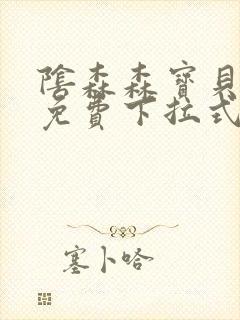 陰森森寶貝
免費下拉式
塞卜哈